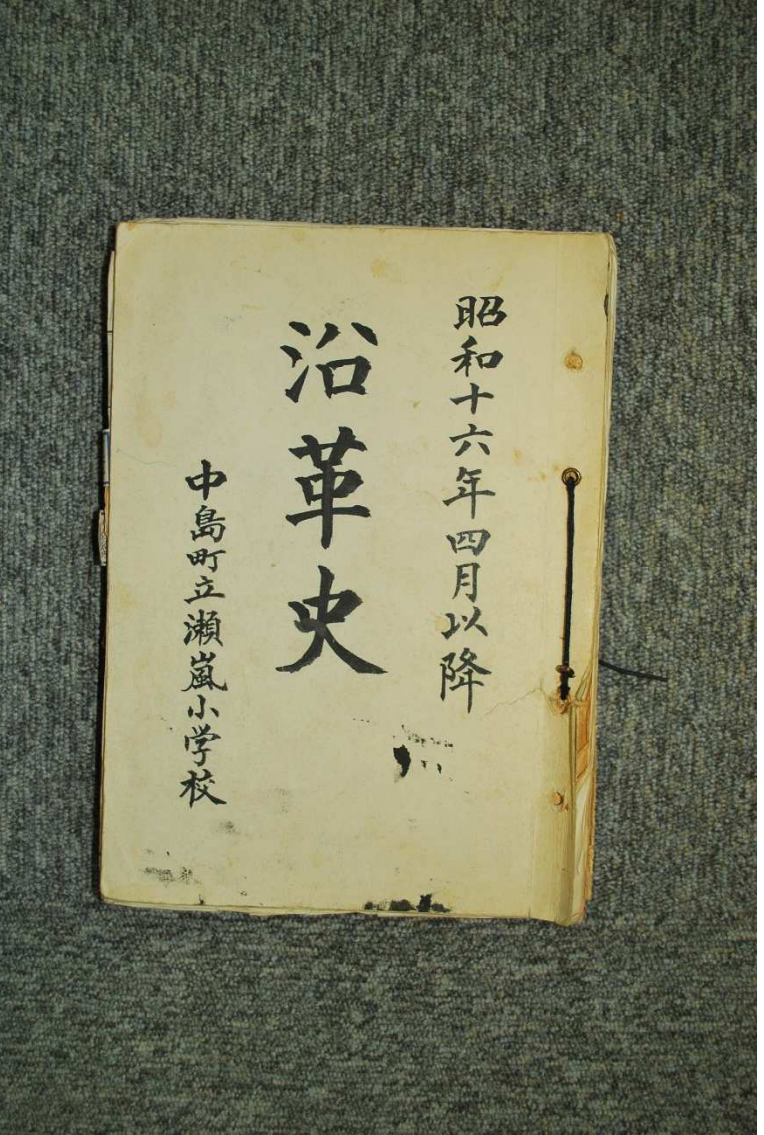 昭和十六年四月以降
沿革史
中島町立瀬嵐小学校